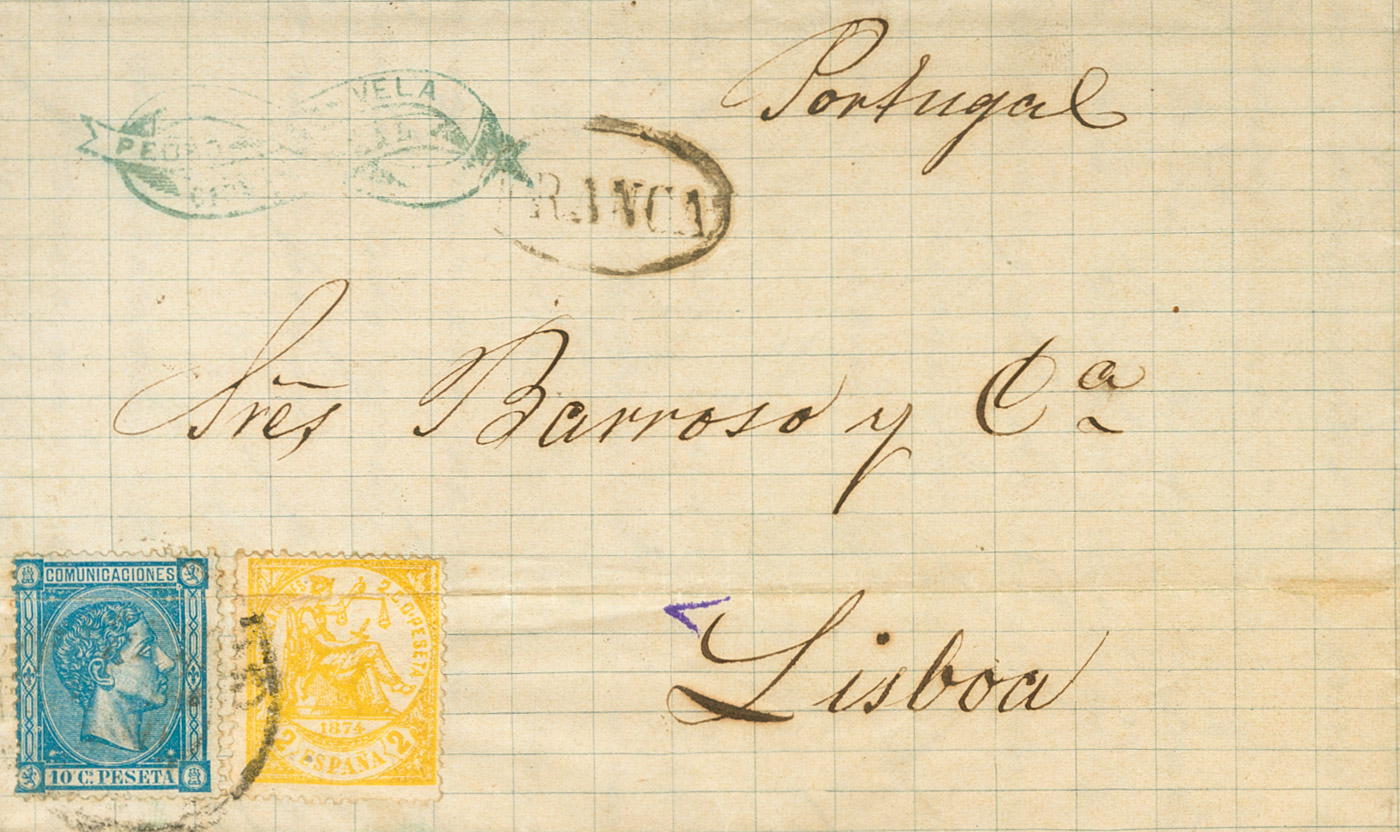 Portugal
VELA
FRANCA
Sres Barroso y Cª
Lisboa
COMUNICACIONES
10 Cs PESETA
2 C. D. PESETA
1874
2 ESPAÑA 2